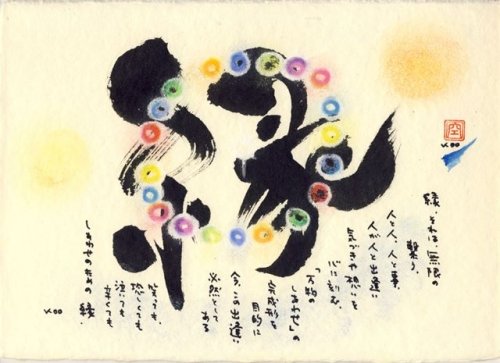 縁
空
縁、それは、無限の
繋り、
人と人、人と事、
人が人と出逢い
気づきや想いを
心に刻む、
「万物の
しあわせ」の
完成形を
目的に
今、この出逢い
必然として
ある
笑っても
泣いても
辛くても
しあわせのための 縁.